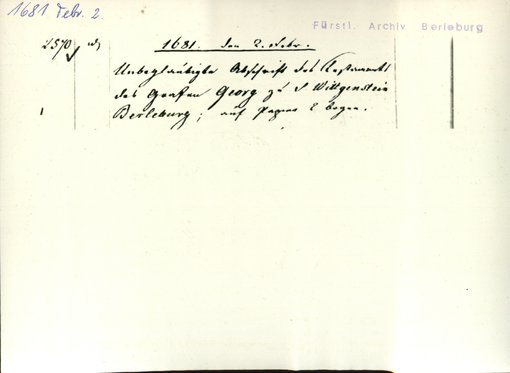 1681 Febr. 2.
Fürstl. Archiv Berleburg
2570 1681. den 2. Febr.
Unbeglaubigte Abschrift des Testaments
des Grafen Georg zu S Wittgenstein
1
Berleburg; auf Papier 2 Bogen.